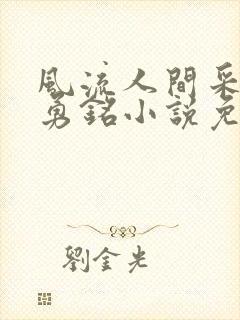 風流人間采
勇銘小說免
劉金光